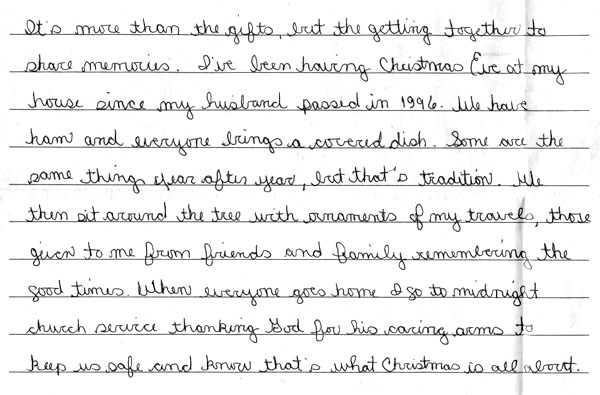 It's more than the gifts, but the getting together to
share memories. I've been having Christmas Eve at my
house since my husband passed in 1996. We have
ham and everyone brings a covered dish. Some are the
same thing year after year, but that's tradition. We
then sit around the tree with ornaments of my travels, those
given to me from friends and family remembering the
good times. When everyone goes home I go to midnight
church service thanking God for his caring arms to
keep us safe and know that's what Christmas is all about.